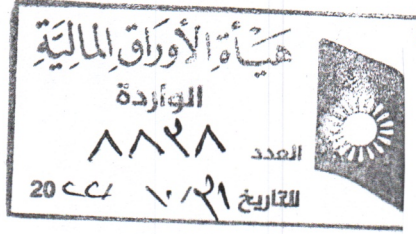 هَيْأَةِ الْأَوْرَاقِ الْمَالِيَّةِ
الواردة
العدد ٨٨٣٨
للتاريخ ١٠/٣١/ 20٢٢